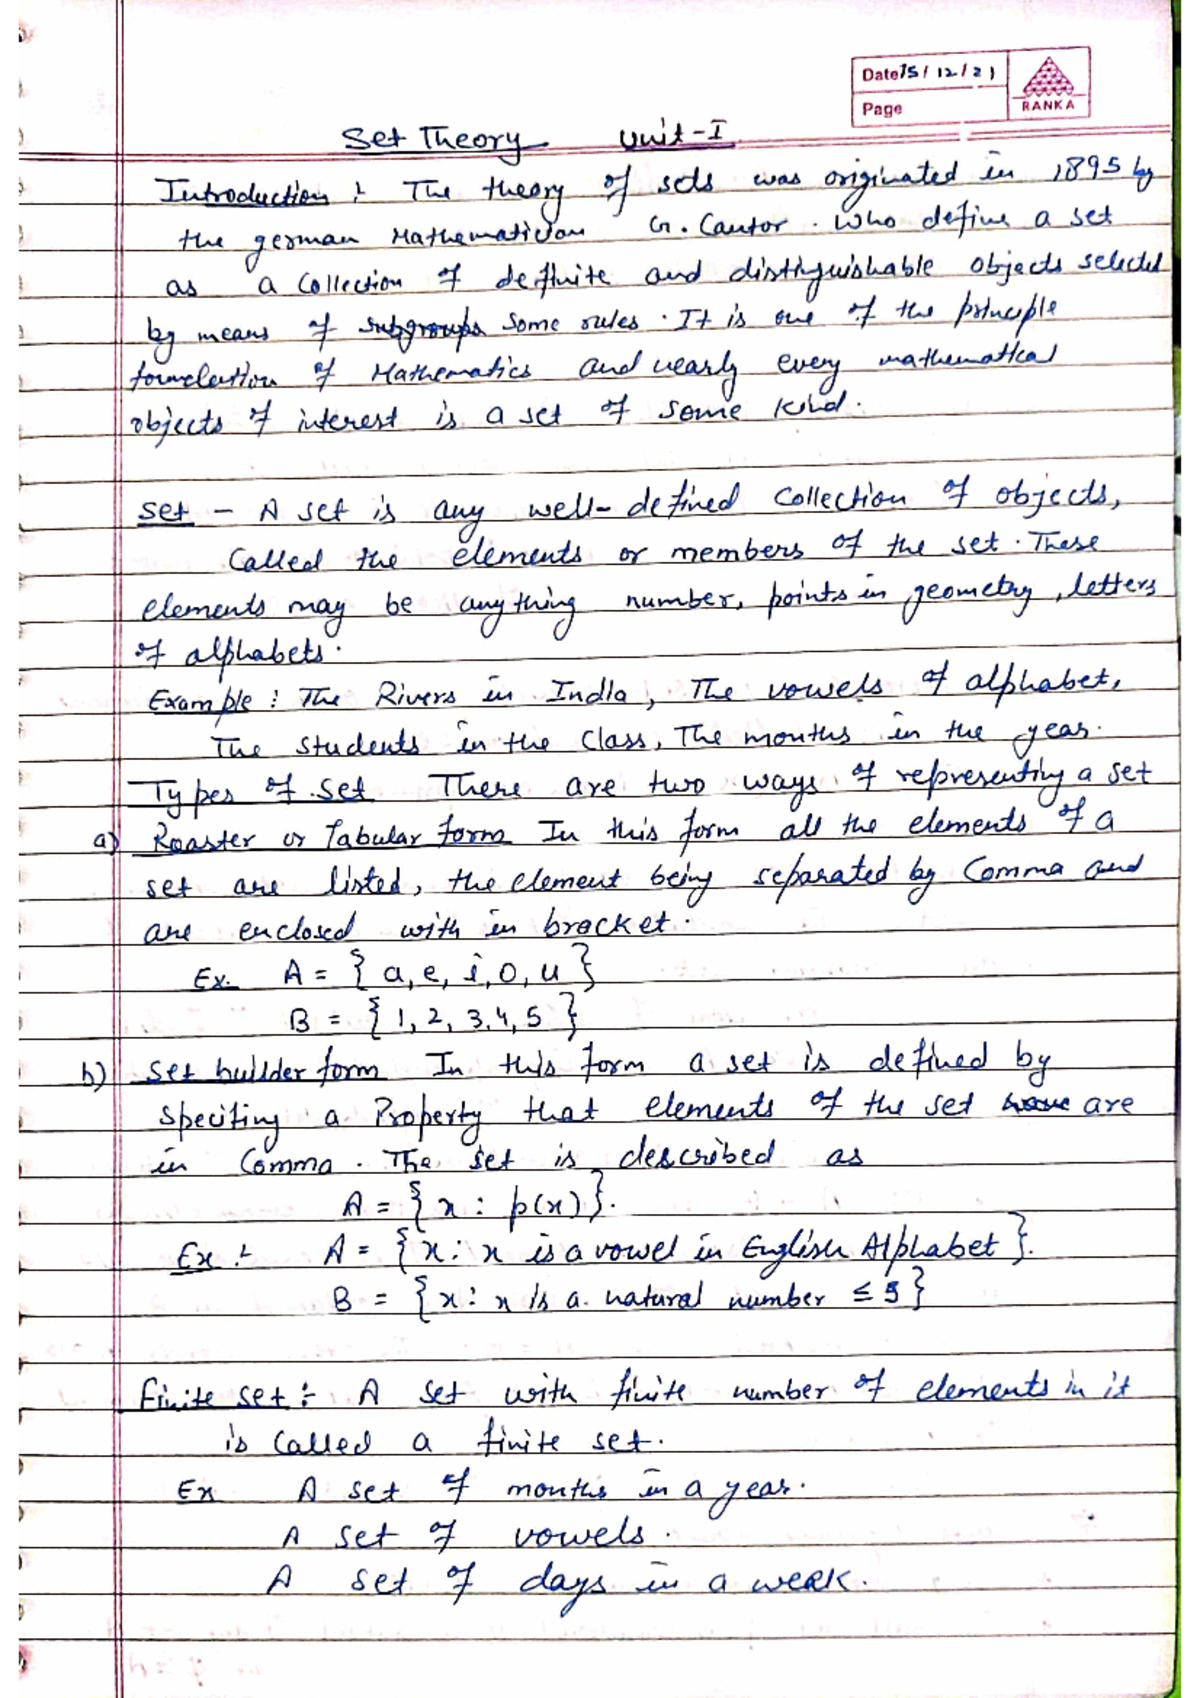 Date 15/12/21
Page
RANKA
Set Theory Unit-I
Introduction : The theory of sets was originated in 1895 by
the german Mathematician G. Cantor. Who define a set
as a collection of definite and distinguishable objects selected
by means of subgroups some rules. It is one of the principle
foundation of Mathematics and nearly every mathematical
objects of interest is a set of some kind.
Set - A set is any well-defined collection of objects,
Called the elements or members of the set. These
elements may be anything number, points in geometry, letters
of alphabets.
Example : The Rivers in India, The vowels of alphabet,
The students in the class, The months in the year.
Types of set There are two ways of representing a set
a) Roaster or Tabular form In this form all the elements of a
set are listed, the element being separated by Comma and
are enclosed with in bracket.
Ex. A = { a, e, i, o, u }
B = { 1, 2, 3, 4, 5 }
b) Set builder form In this form a set is defined by
Speciting a Property that elements of the set have are
in Comma. The set is described as
A = { x : p(x) }.
Ex :- A = { x : x is a vowel in English Alphabet }.
B = { x : x is a natural number ≤ 5 }
Finite set :- A set with finite number of elements in it
is called a finite set.
Ex A set of months in a year.
A set of vowels.
A set of days in a week.